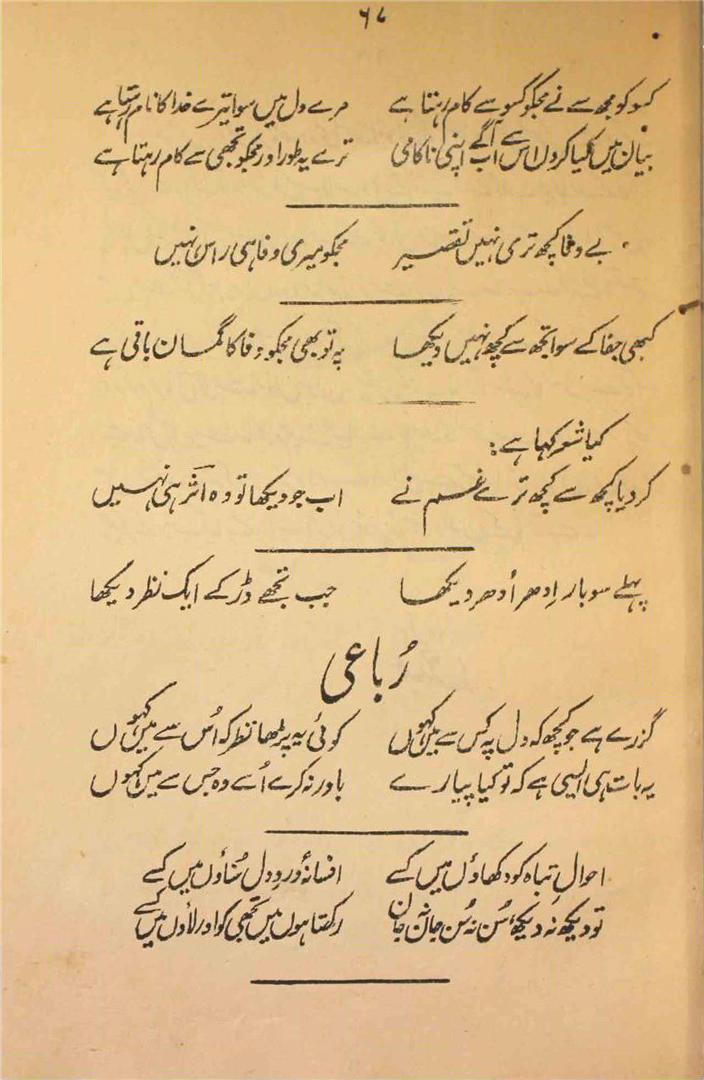 ۶۷
کسو کو مجھ سے نے مجکو کسو سے کام رہتا ہے مرے دل میں سوا تیرے خدا کا نام رہتا ہے
بیان میں کیا کروں اس سے آگے اب اپنی ناکامی ترے یہ طور اور مجکو تجھی سے کام رہتا ہے
بے وفا کچھ تری نہیں تقصیر مجکو میری وفا ہی راس نہیں
کبھی جفا کے سوا تجھ سے کچھ نہیں دیکھا پہ تو بھی مجکو وفا کا گمان باقی ہے
کیا شعر کہا ہے:
کر دیا کچھ سے کچھ ترے غم نے اب جو دیکھا تو وہ اثر ہی نہیں
پہلے سو بار اِدھر اُدھر دیکھا جب تجھے ڈر کے ایک نظر دیکھا
رُباعی
گزرے ہے جو کچھ کہ دل پہ کس سے میں کہوں کوئی یہ پڑھا نظر کہ اُس سے میں کہوں
یہ بات ہی ایسی ہے کہ تو کیا پیارے باور نہ کرے اُسے وہ جس سے میں کہوں
احوالِ تباہ کو دکھاؤں میں کسے افسانۂ دردِ دل سُناؤں میں کسے
تو دیکھ نہ دیکھ، سُن نہ سُن جان نہ جان رکھتا ہوں میں تجھی کو اور لاؤں میں کسے